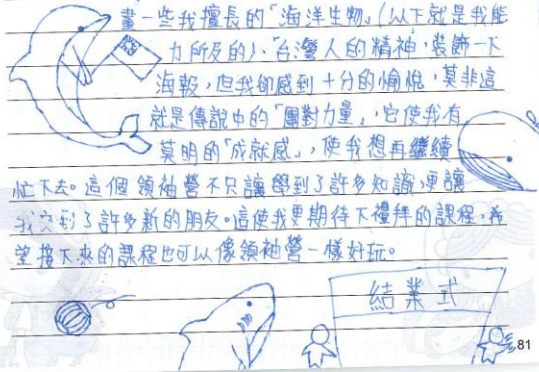 畫一些我擅長的「海洋生物」(以下就是我能
力所及的)、「台灣人的精神」裝飾一下
海報,但我卻感到十分的愉悅,莫非這
就是傳說中的「團對力量」,它使我有
莫明的「成就感」,使我想再繼續
忙下去。這個領袖營不只讓學到了許多知識,更讓
我交到了許多新的朋友。這使我更期待下禮拜的課程,希
望接下來的課程也可以像領袖營一樣好玩。
結業式
81